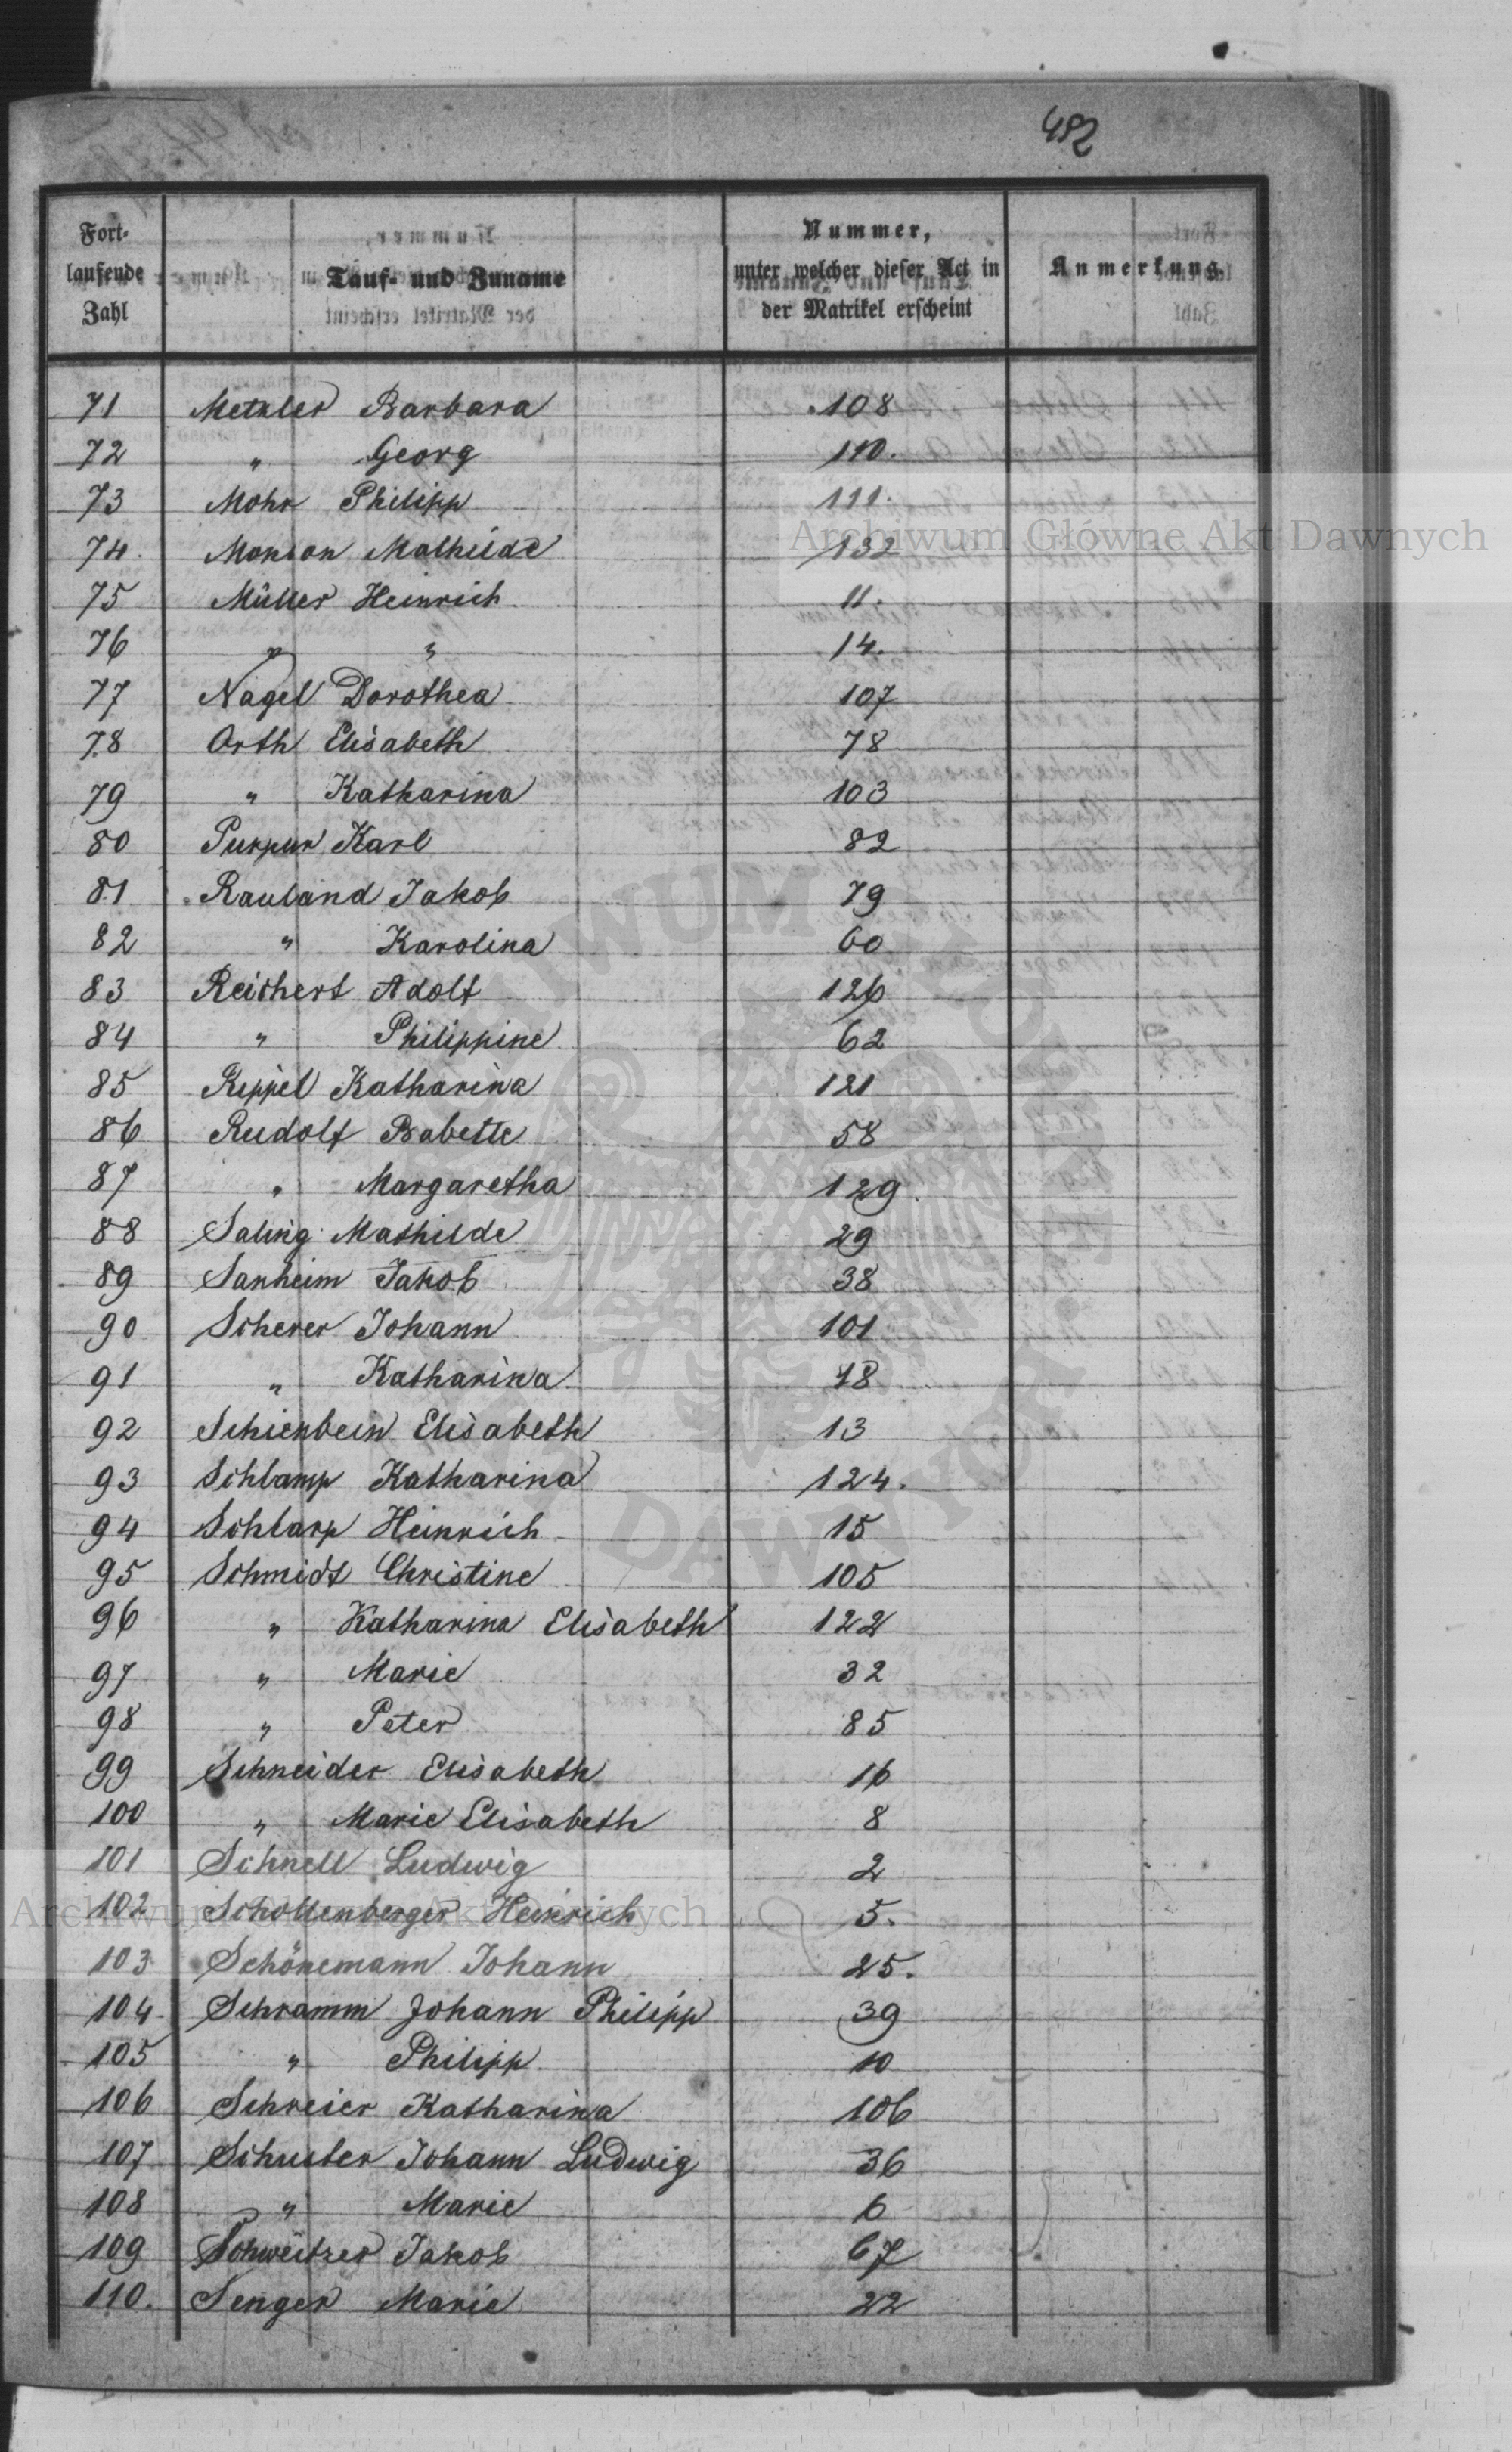 482
Fort-
laufende
Zahl
Tauf- und Zuname
Nummer,
unter welcher dieser Act in
der Matrikel erscheint
Anmerkung.
71 Metzler Barbara 108
72 " Georg 110.
73 Mohr Philipp 111.
74. Manson Mathilde 132
75 Müller Heinrich 11.
76 " " 14.
77 Nagel Dorothea 107
78 Orth Elisabeth 78
79 " Katharina 103
80 Purpur Karl 82
81 Rauland Jakob 79
82 " Karolina 60
83 Reichert Adolf 126
84 " Philippine 62
85 Rippel Katharina 121
86 Rudolf Babette 58
87 " Margaretha 129.
88 Saling Mathilde 29
89 Sanheim Jakob 38
90 Scherer Johann 101
91 " Katharina 18
92 Schienbein Elisabeth 13
93 Schlamp Katharina 124.
94 Schlarp Heinrich 15
95 Schmidt Christine 105
96 " Katharina Elisabeth 122
97 " Marie 32
98 " Peter 85
99 Schneider Elisabeth 16
100 " Marie Elisabeth 8
101 Schnell Ludwig 2
102 Schollenberger Heinrich 5.
103 Schönemann Johann 25.
104. Schramm Johann Philipp 39
105 " Philipp 10
106 Schreier Katharina 106
107 Schuster Johann Ludwig 36
108 " Marie 6
109 Schweitzer Jakob 67
110. Senger Marie 22
Archiwum Główne Akt Dawnych